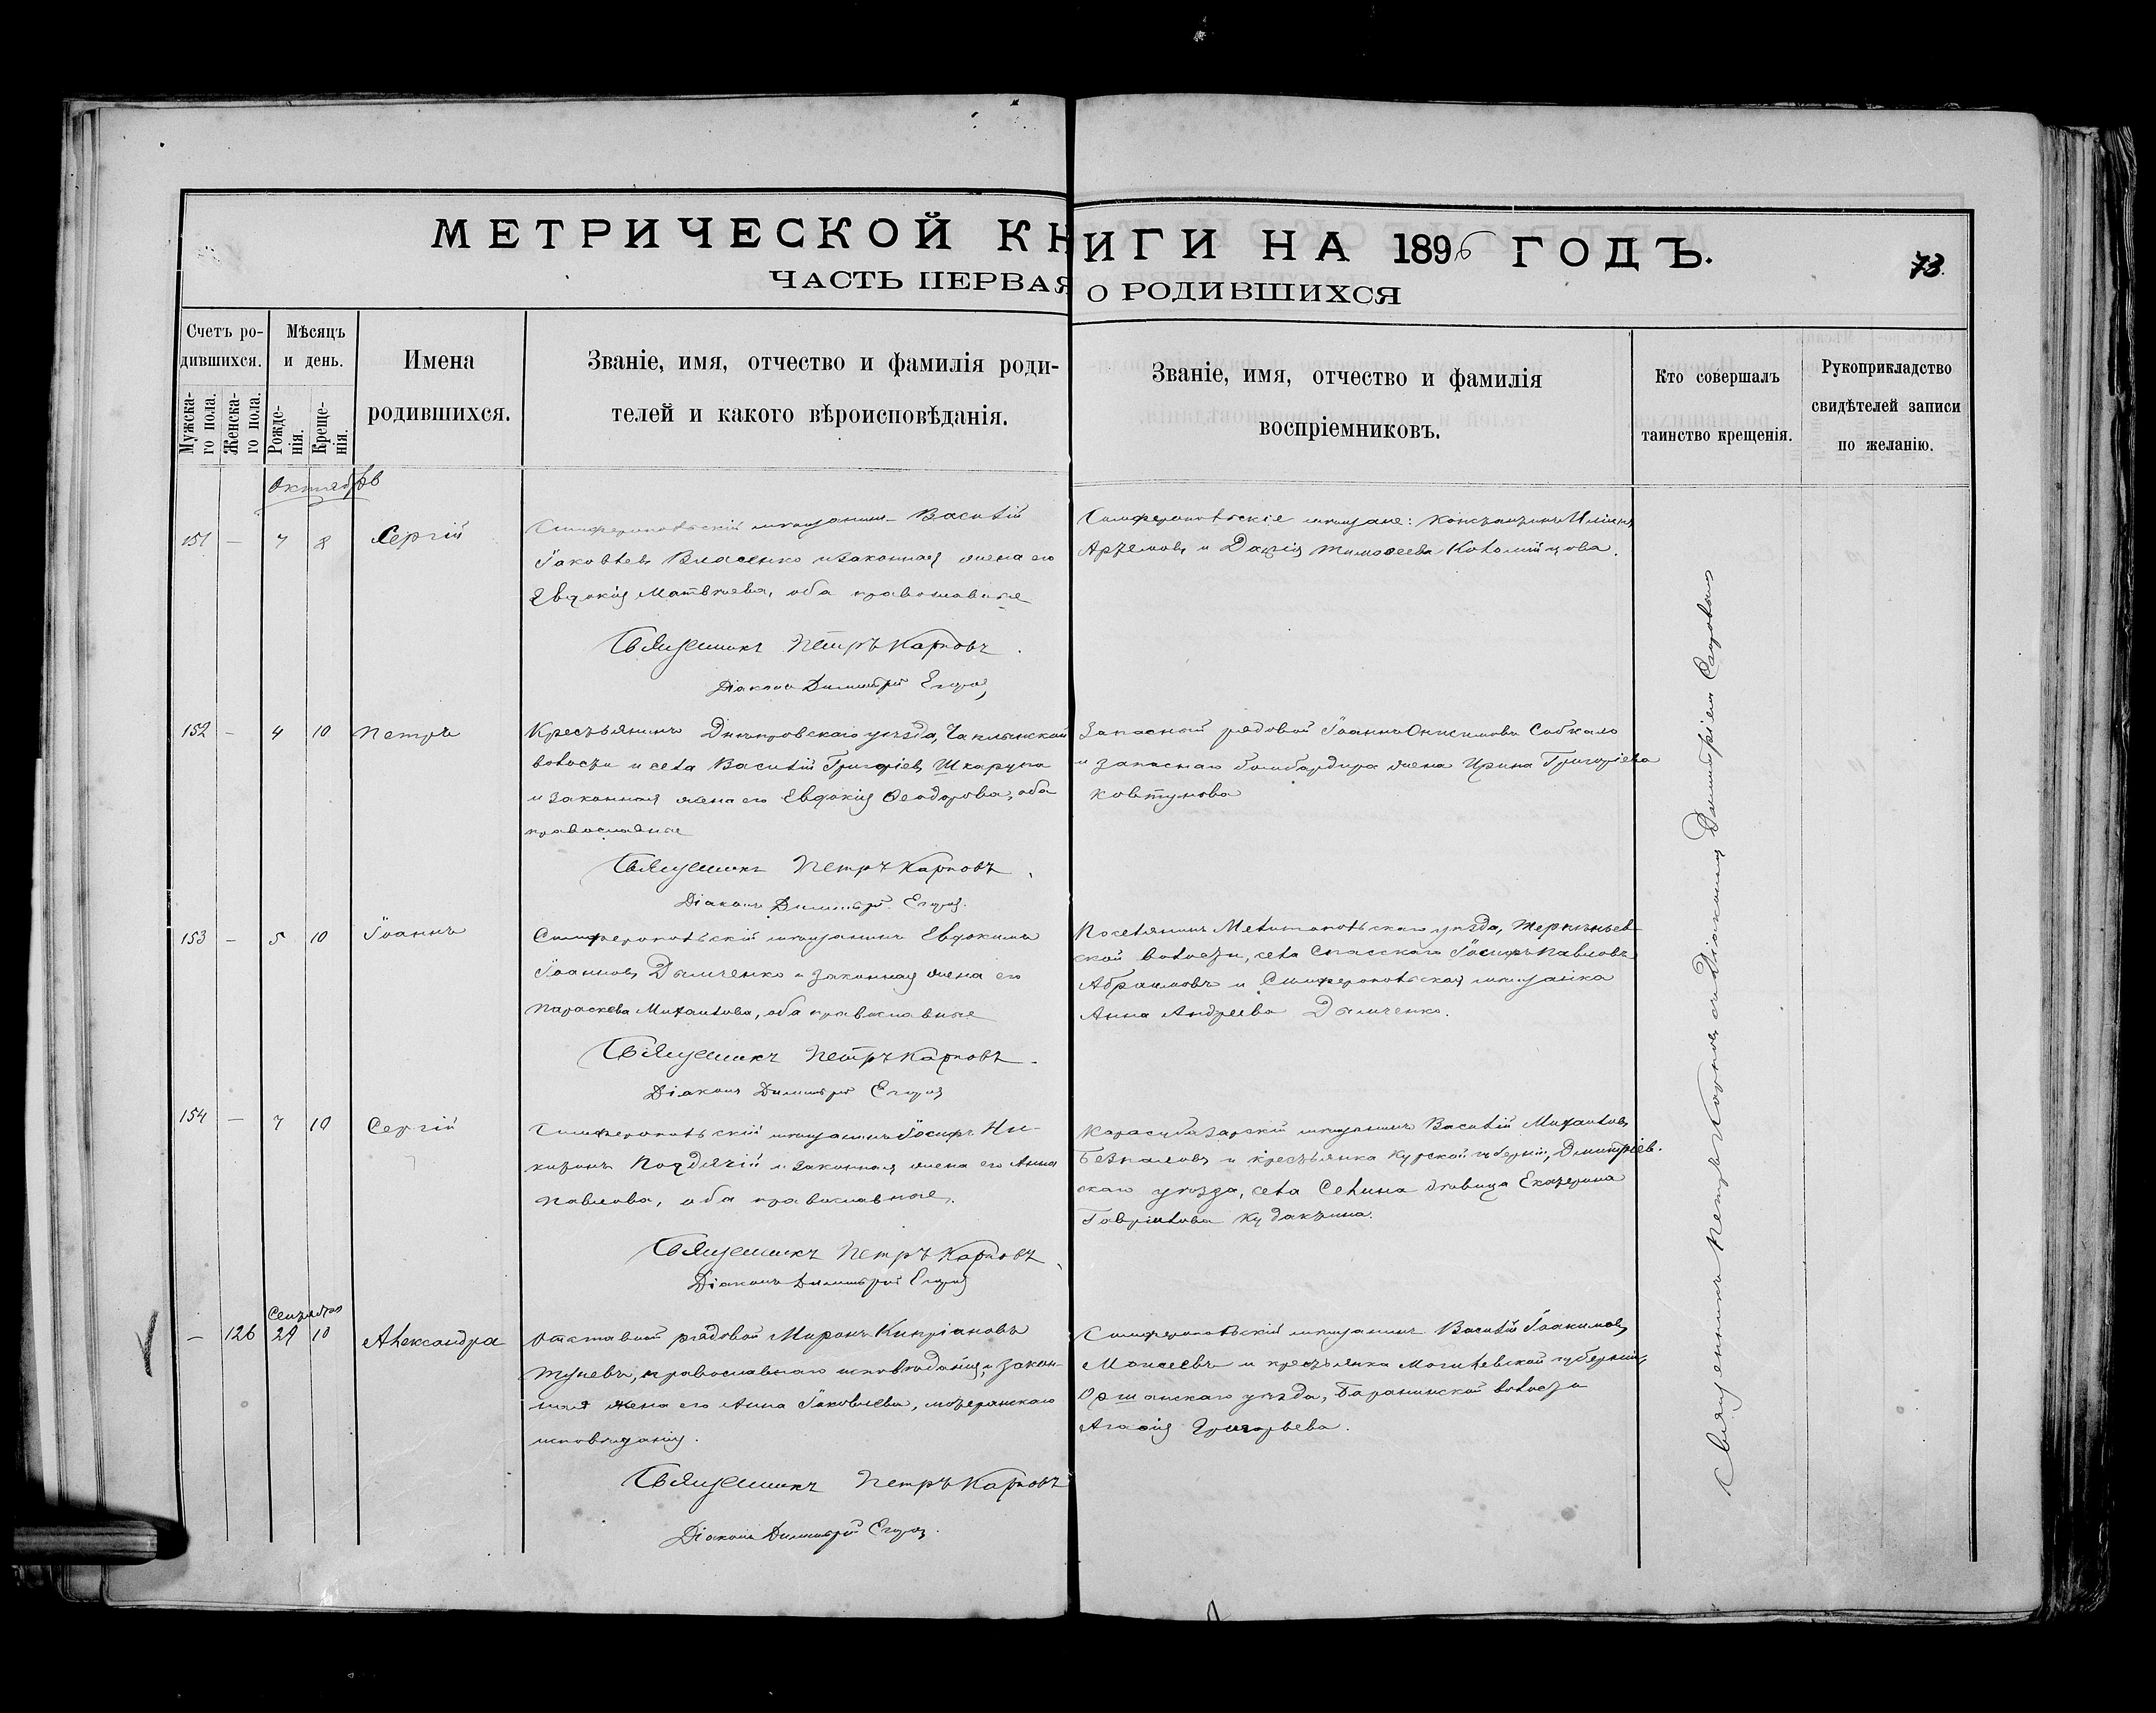 МЕТРИЧЕСКОЙ КНИГИ НА 1896 ГОДЪ.
73.
ЧАСТЬ ПЕРВАЯ О РОДИВШИХСЯ
Счетъ ро-
дившихся.
Мужска-
го пола.
Женска-
го пола.
Мѣсяцъ
и день.
Рожде-
нія.
Креще-
нія.
Имена
родившихся.
Званіе, имя, отчество и фамилія роди-
телей и какого вѣроисповѣданія.
Званіе, имя, отчество и фамилія
воспріемниковъ.
Кто совершалъ
таинство крещенія.
Рукоприкладство
свидѣтелей записи
по желанію.
Октябрь
151 — 7 8 Сергій
Симферопольскій мѣщанинъ Василій
Іаковлевъ Власенко и законная жена его
Евдокія Матвѣева, оба православные
Священникъ Петръ Карповъ
Діаконъ Димитрій
Симферопольскіе мѣщане: Константинъ Ильинъ
Артемовъ и Дарія Тимоѳеева Коломійцова.
152 — 4 10 Петръ
Крестьянинъ Днѣпровскаго уѣзда, Чаплынской
волости и села Василій Григоріевъ Шкарупа
и законная жена его Евдокія Ѳеодорова, оба
православные
Священникъ Петръ Карповъ
Діаконъ Димитрій
Запасный рядовой Іоаннъ Онисимовъ Собкало
и запаснаго бомбардира жена Ирина Григоріева
Ковтунова
153 — 5 10 Іоаннъ
Симферопольскій мѣщанинъ Евдокимъ
Іоанновъ Дымченко и законная жена его
Параскева Михаилова, оба православные
Священникъ Петръ Карповъ
Діаконъ Димитрій
Поселянинъ Мелитопольскаго уѣзда, Терпѣньев-
ской волости, села Спасскаго Іосифъ Павловъ
Абраимовъ и Симферопольская мѣщанка
Анна Андреева Дымченко.
154 — 7 10 Сергій
Симферопольскій мѣщанинъ Іосифъ Ни-
китинъ Подячій и законная жена его Анна
Павлова, оба православные.
Священникъ Петръ Карповъ
Діаконъ Димитрій
Карасубазарскій мѣщанинъ Василій Михаиловъ
Безпаловъ и крестьянка Курской губерніи, Дмитріев-
скаго уѣзда, села Селина дѣвица Екатерина
Гавріилова Кудактина.
Сентября
— 126 24 10 Александра
Отставной рядовой Миронъ Кипріановъ
православнаго исповѣданія, и закон-
ная жена его Анна Іаковлева, лютеранскаго
исповѣданія.
Священникъ Петръ Карповъ
Діаконъ Димитрій
Симферопольскій мѣщанинъ Василій Іоакимовъ
Моисеевъ и крестьянка Могилевской губерніи,
Оршанскаго уѣзда, Баранинской волости
Агаѳія Григорьева.
Священникъ Петръ Карповъ съ Діакономъ Димитріемъ